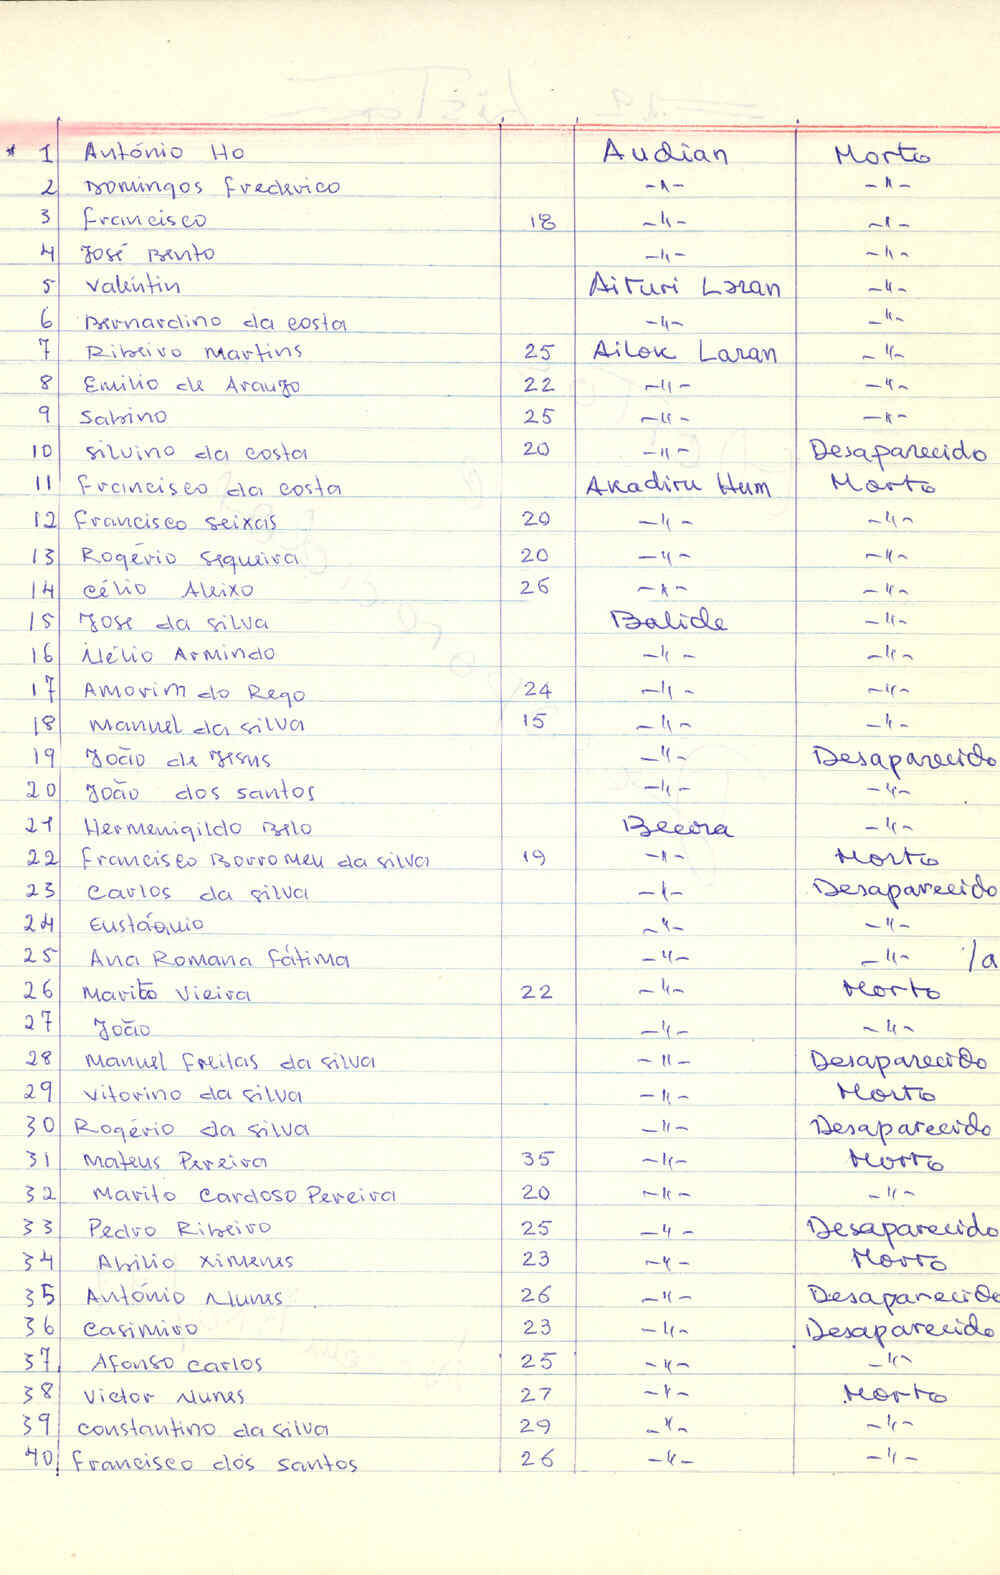 * 1 António Ho Audian Morto
2 Domingos Frederico -"- -"-
3 Francisco 18 -"- -"-
4 José Bento -"- -"-
5 Valéntin Aituri Laran -"-
6 Bernardino da Costa -"- -"-
7 Ribeiro Martins 25 Ailok Laran -"-
8 Emilio de Araujo 22 -"- -"-
9 Sabino 25 -"- -"-
10 Silvino da Costa 20 -"- Desaparecido
11 Francisco da Costa Akadiru Hum Morto
12 Francisco Seixas 20 -"- -"-
13 Rogério Siqueira 20 -"- -"-
14 Célio Aleixo 26 -"- -"-
15 Jose da Silva Balide -"-
16 Nélio Armindo -"- -"-
17 Amorim do Rego 24 -"- -"-
18 Manuel da Silva 15 -"- -"-
19 João de Jesus -"- Desaparecido
20 João dos Santos -"- -"-
21 Hermenigildo Belo Becora -"-
22 Francisco Borromeu da Silva 19 -"- Morto
23 Carlos da Silva -"- Desaparecido
24 Eustáquio -"- -"-
25 Ana Romana Fátima -"- -"- /a
26 Marito Vieira 22 -"- Morto
27 João -"- -"-
28 Manuel Freitas da Silva -"- Desaparecido
29 Vitorino da Silva -"- Morto
30 Rogério da Silva -"- Desaparecido
31 Mateus Pereira 35 -"- Morto
32 Marito Cardoso Pereira 20 -"- -"-
33 Pedro Ribeiro 25 -"- Desaparecido
34 Abilio Ximenes 23 -"- Morto
35 António Nunes 26 -"- Desaparecido
36 Casimiro 23 -"- Desaparecido
37 Afonso Carlos 25 -"- -"-
38 Victor Nunes 27 -"- Morto
39 Constantino da Silva 29 -"- -"-
40 Francisco dos Santos 26 -"- -"-